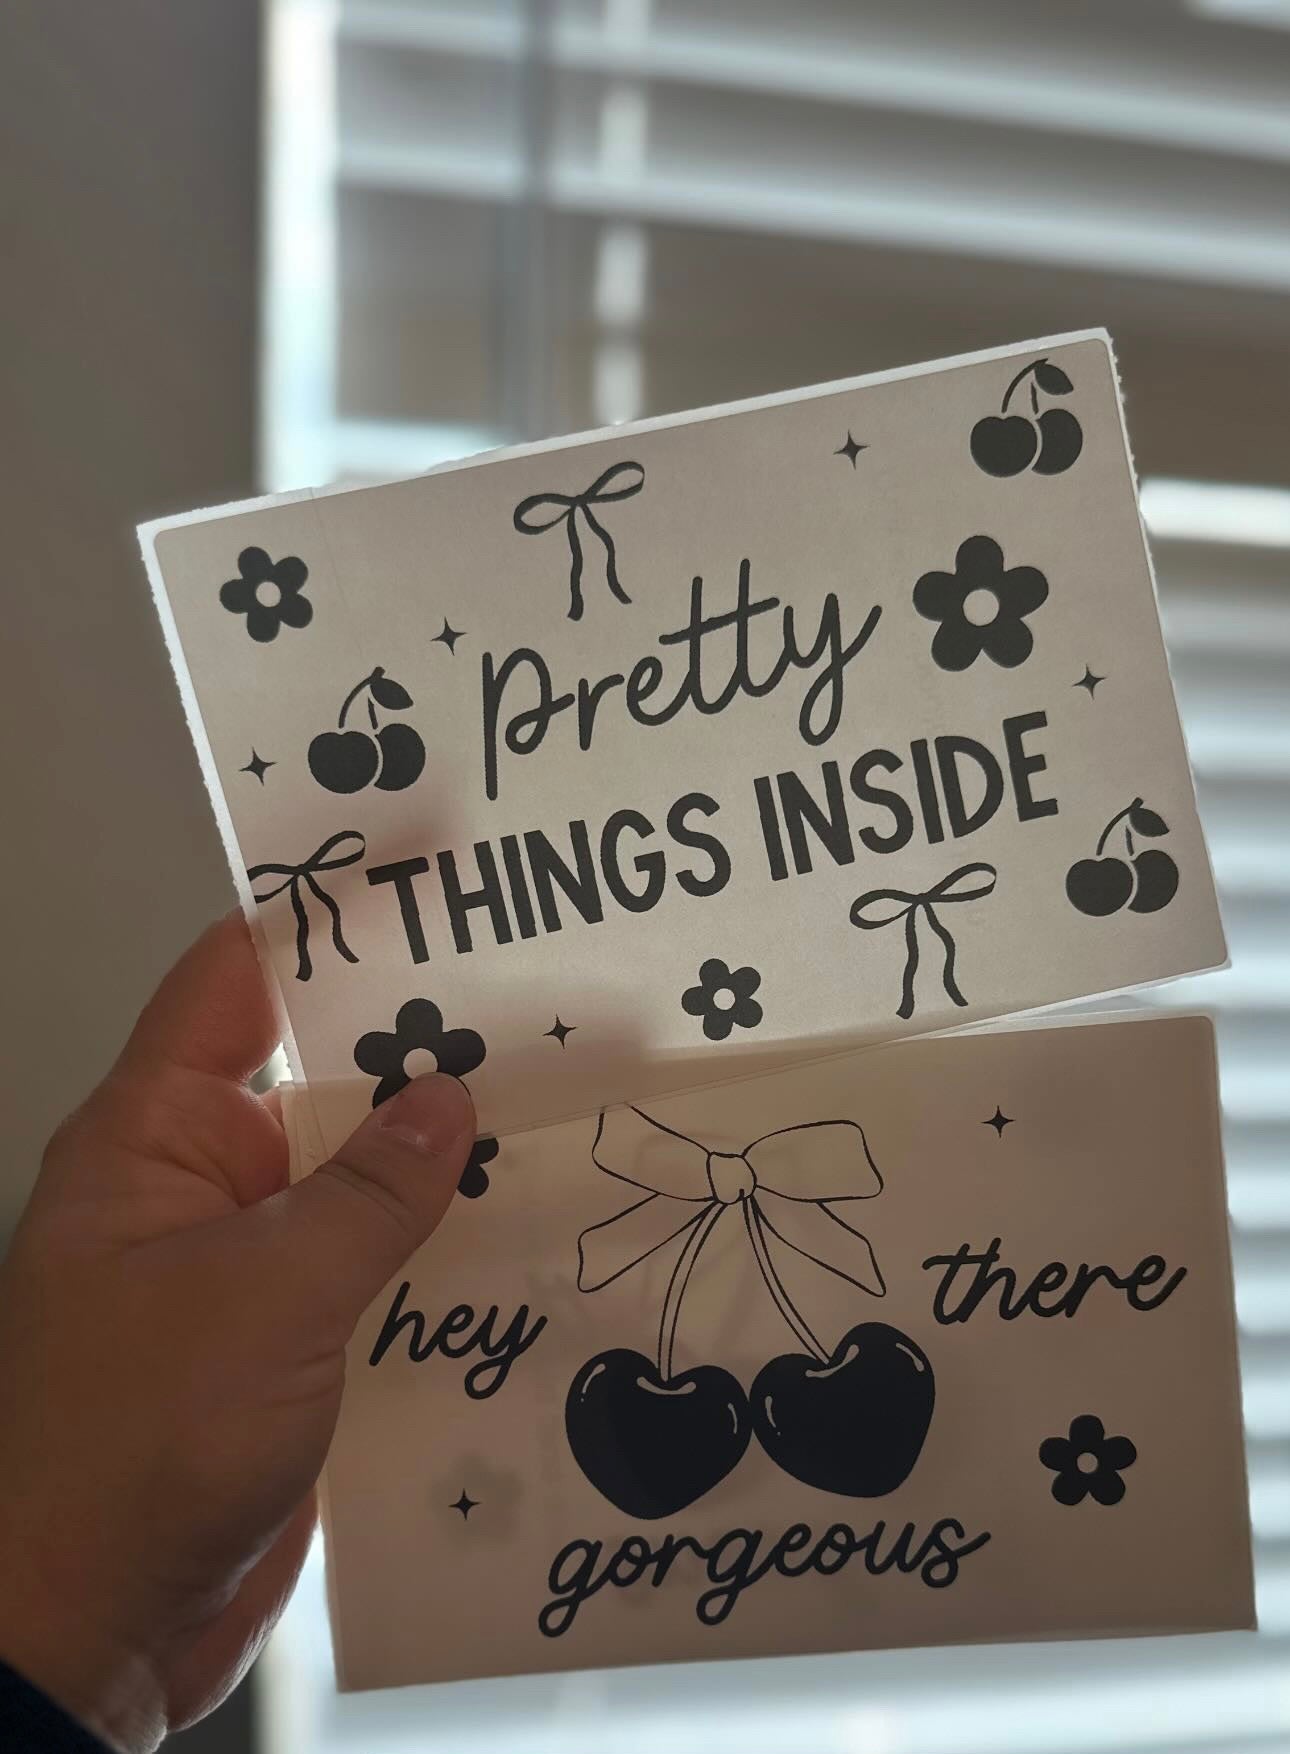 Pretty
THINGS INSIDE
hey there
gorgeous